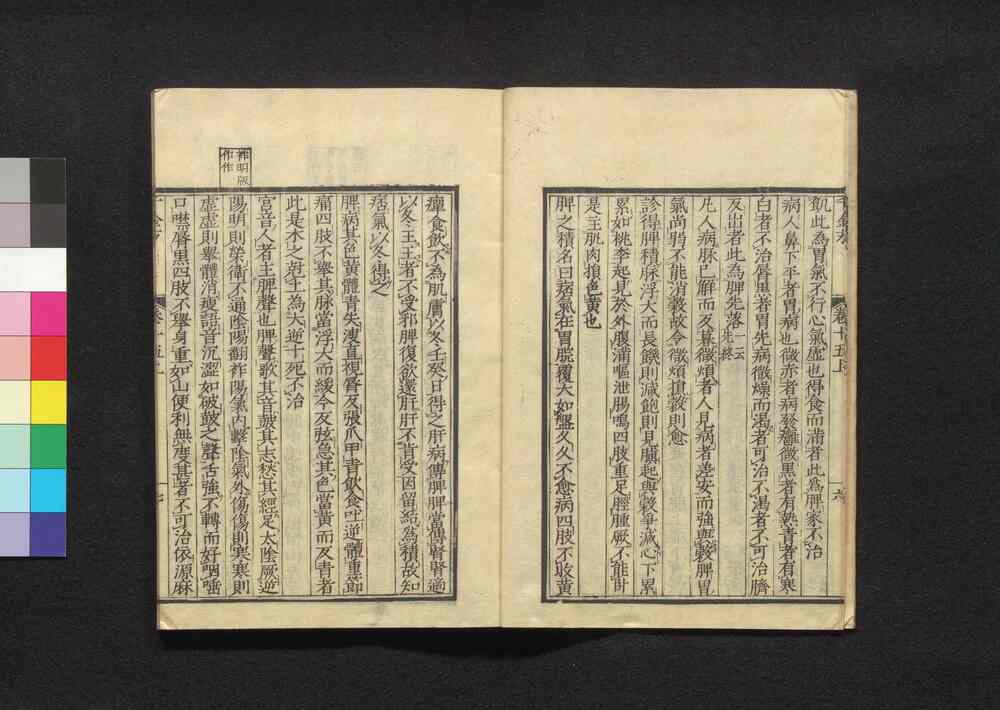 飢此為胃氣不行心氣虛也得食而滿者此為脾家不治
病人鼻下平者胃病也微赤者病發癰微黑者有熱青者有寒
白者不治唇黑者胃先病微燥而渴者可治不渴者不可治臍
反出者此為脾先落一云先終
凡人病脉已解而反暮微煩者人見病者差安而強與穀脾胃
氣尚弱不能消穀故令微煩損穀則愈
診得脾積脉浮大而長飢則減飽則見䐜起與穀爭減心下累
累如桃李起見於外腹滿嘔泄腸鳴四肢重足脛腫厥不能臥
是主肌肉損色黃也
脾之積名曰痞氣在胃脘覆大如盤久久不愈病四肢不收黃
千金方 卷十五上 六
癉食飲不為肌膚以冬壬癸日得之肝病傳脾脾當傳腎腎適
以冬王王者不受邪脾復欲還肝肝不肯受因留結為積故知
痞氣以冬得之
脾病其色黃體青失溲直視唇反張爪甲青飲食吐逆體重節
痛四肢不舉其脉當浮大而緩今反弦急其色當黃而反青者
此是木之剋土為大逆十死不治
宮音人者主脾聲也脾聲歌其音鼓其志愁其經足太陰厥逆
陽明則榮衛不通陰陽翻祚陽氣內擊陰氣外傷傷則寒寒則
虛虛則舉體消瘦語音沉澀如破鼓之聲舌強不轉而好咽唾
口噤唇黑四肢不舉身重如山便利無度甚者不可治依源麻
千金方 卷十五上 七
祚明版
作作